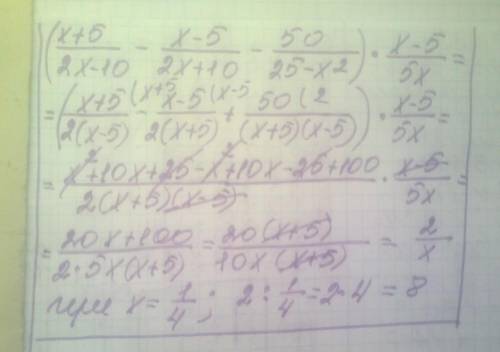 ((x+5)/(2x-10) - (x-5)/(2x+10) - 50/(25-x²)) · (x-5)/(5x) =
= ((x+5)(x+5)/(2(x-5)) - (x-5)(x-5)/(2(x+5)) + 50(2/((x+5)(x-5))) · (x-5)/(5x) =
= (x²+10x+25-x²+10x-25+100)/(2(x+5)(x-5)) · (x-5)/(5x) =
= (20x+100)/(2·5x(x+5)) = 20(x+5)/(10x(x+5)) = 2/x
при x = 1/4 ; 2 : 1/4 = 2·4 = 8